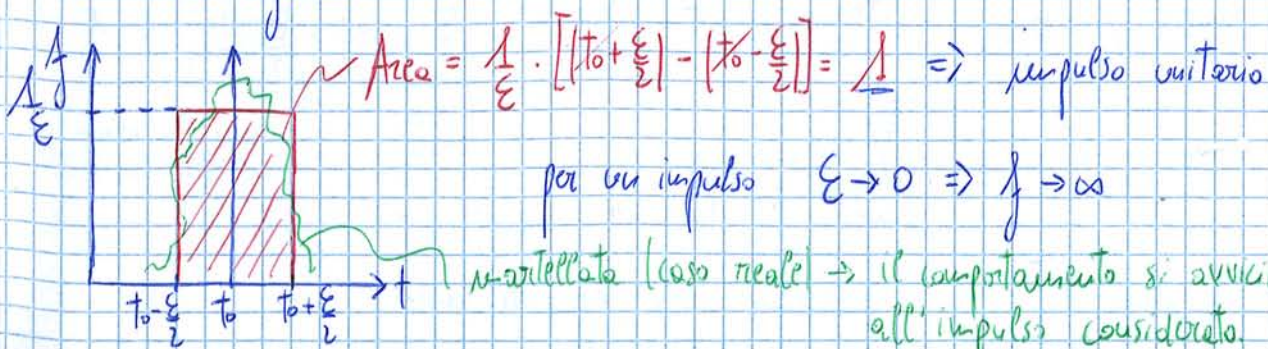 f
1/ε
Area = 1/ε · [(t₀+ε/2) - (t₀-ε/2)] = 1 => impulso unitario
per un impulso ε → 0 => f → ∞
martellata (caso reale) → il comportamento si avvici
all'impulso considerato.
t₀-ε/2 t₀ t₀+ε/2 t